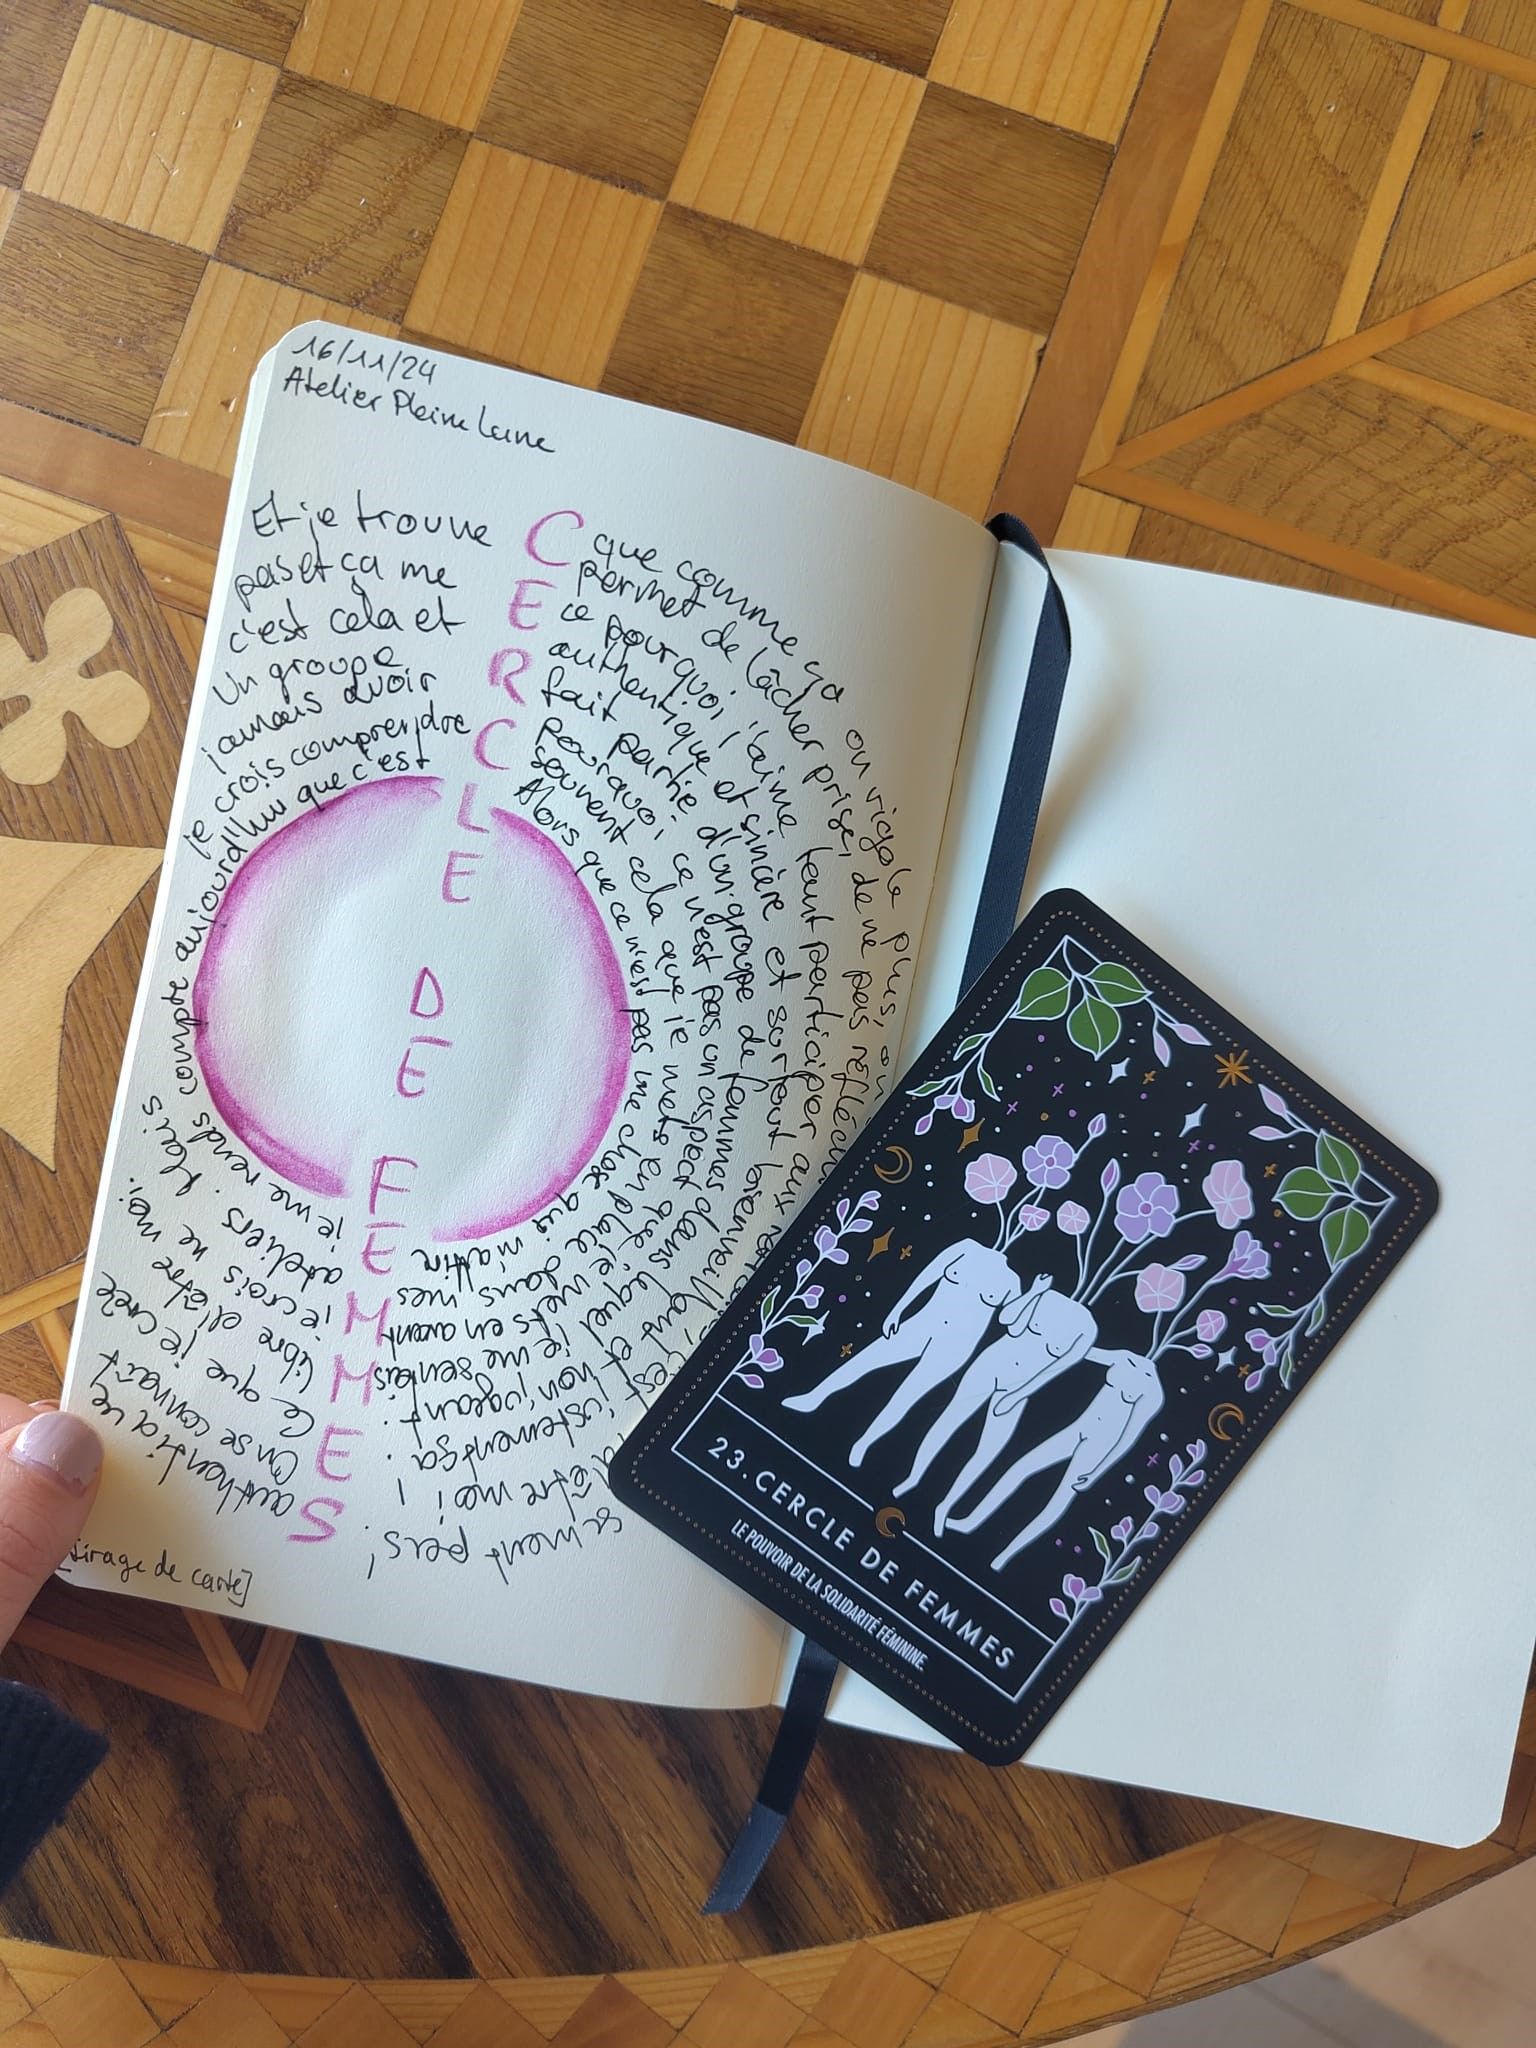 16/11/24
Atelier Pleine Lune
CERCLE
DE
FEMMES
Alors que ce n'est pas une chose qui m'attire
je me rends compte aujourd'hui que c'est
souvent cela que je mets en place dans mes
ateliers. Mais je crois comprendre
pourquoi, ce n'est pas un aspect que je mets en avant
je crois ne jamais avoir
fait partie d'un groupe de femmes dans lequel je me sentais
libre d'être moi. Un groupe
authentique et sincère et surtout bienveillant et non jugeant.
Ce que je crée c'est cela et
ce pourquoi j'aime tant participer aux c'est justement ça !
On se connaît pas et ça me
permet de lâcher prise, de ne pas d'être moi,
authentique Et je trouve
que comme ça on rigole plus, on pas !
[tirage de carte]
23. CERCLE DE FEMMES
LE POUVOIR DE LA SOLIDARITÉ FÉMININE.